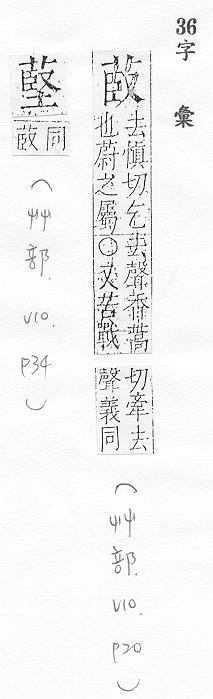 36字 彙
菣
去愼切乞去聲香蒿
也蔚之屬○又苦戰
切牽去
聲義同
(艸部. V10. P20)
同
菣
(艸部. V10. P34)